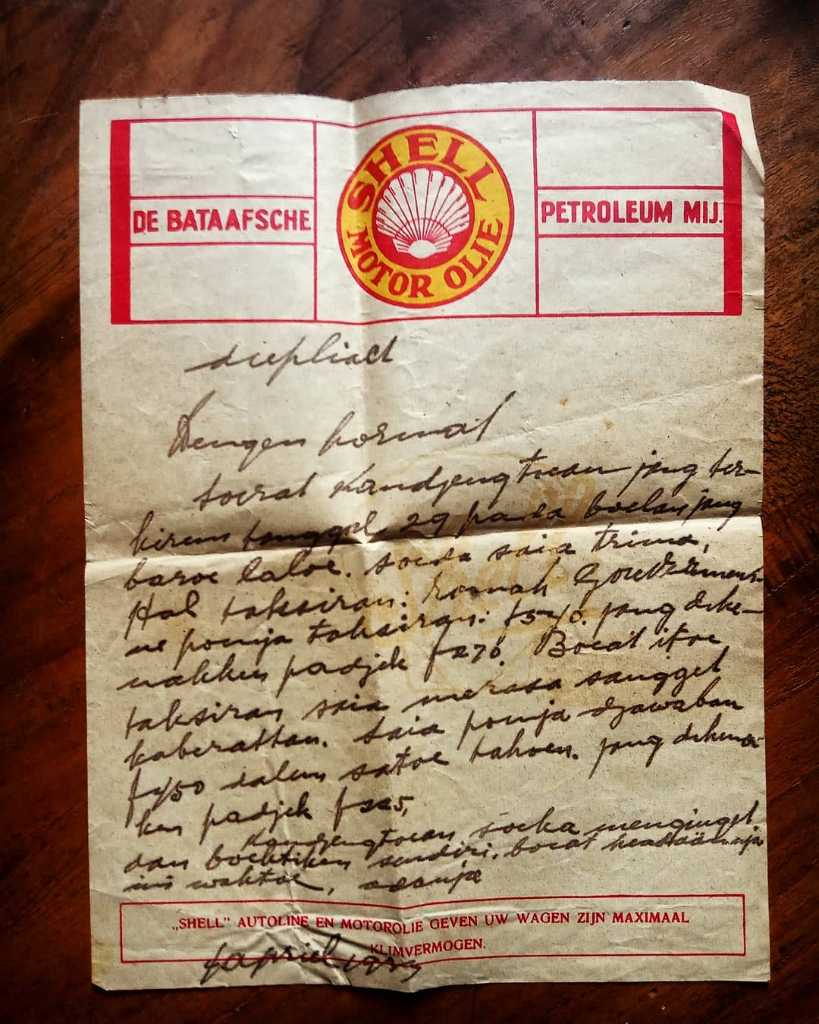 DE BATAAFSCHE
SHELL
MOTOR OLIE
PETROLEUM MIJ.
diepliact
Dengen hormat
Soerat Kandjengtoean jang ter-
kirem tanggal 29 pada boelan jang
baroe laloe. soeda saia trima,
Hal taksiran: romah
ne poenja taksiran: jang dike-
nakken padjek f270. Boeat itoe
taksiran saia merasa sanggel
kaberattan. Saia poenja djawaban
dalem satoe tahoen. jang dikena
ken padjek f225,
Kandjengtoean, soeka mengingel
dan boektiken sendiri, boeat keadäannja
ini waktoe, adanja
„SHELL” AUTOLINE EN MOTOROLIE GEVEN UW WAGEN ZIJN MAXIMAAL
KLIMVERMOGEN.
april